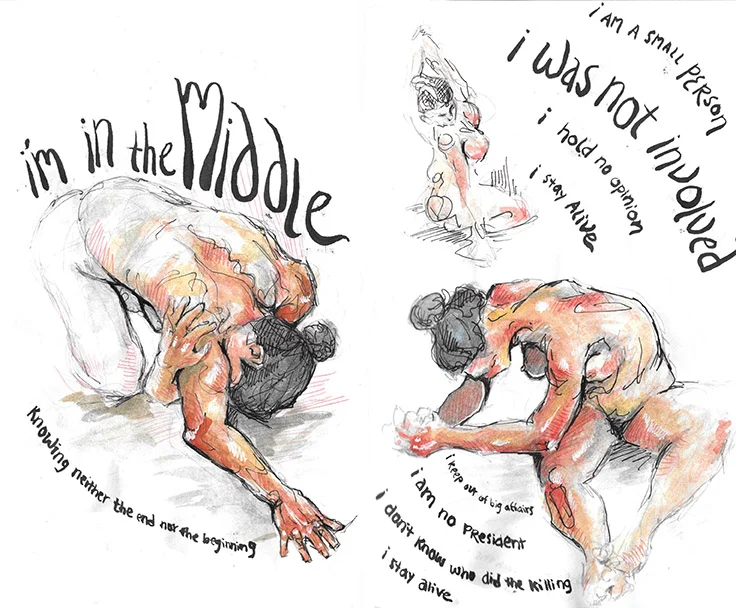 i'm in the Middle
Knowing neither the end nor the beginning
i AM A SMALL PERSON
i was not involved
i hold no opinion
i stay Alive
i keep out of big affairs
i am no President
i don't know who did the killing
i stay alive